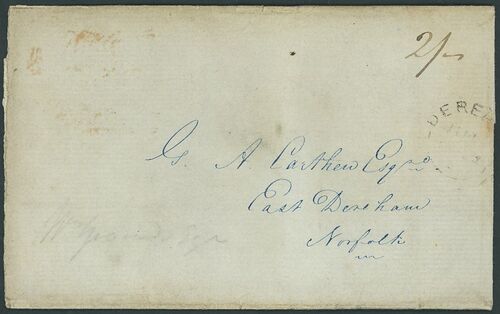 2/-
DEREA
G. A Carthew Esqre
East Dereham
Norfolk
Esqr